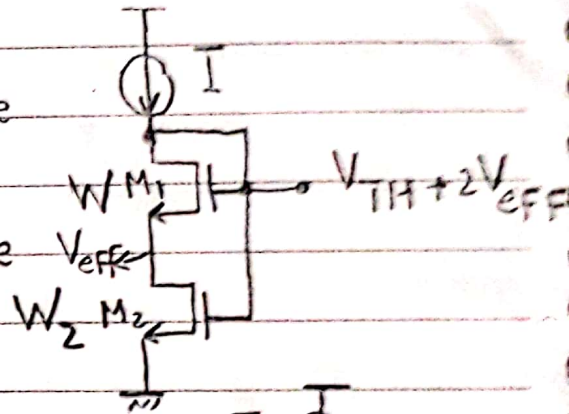 I
W M1 VTH + 2Veff
Veff
W2 M2
I